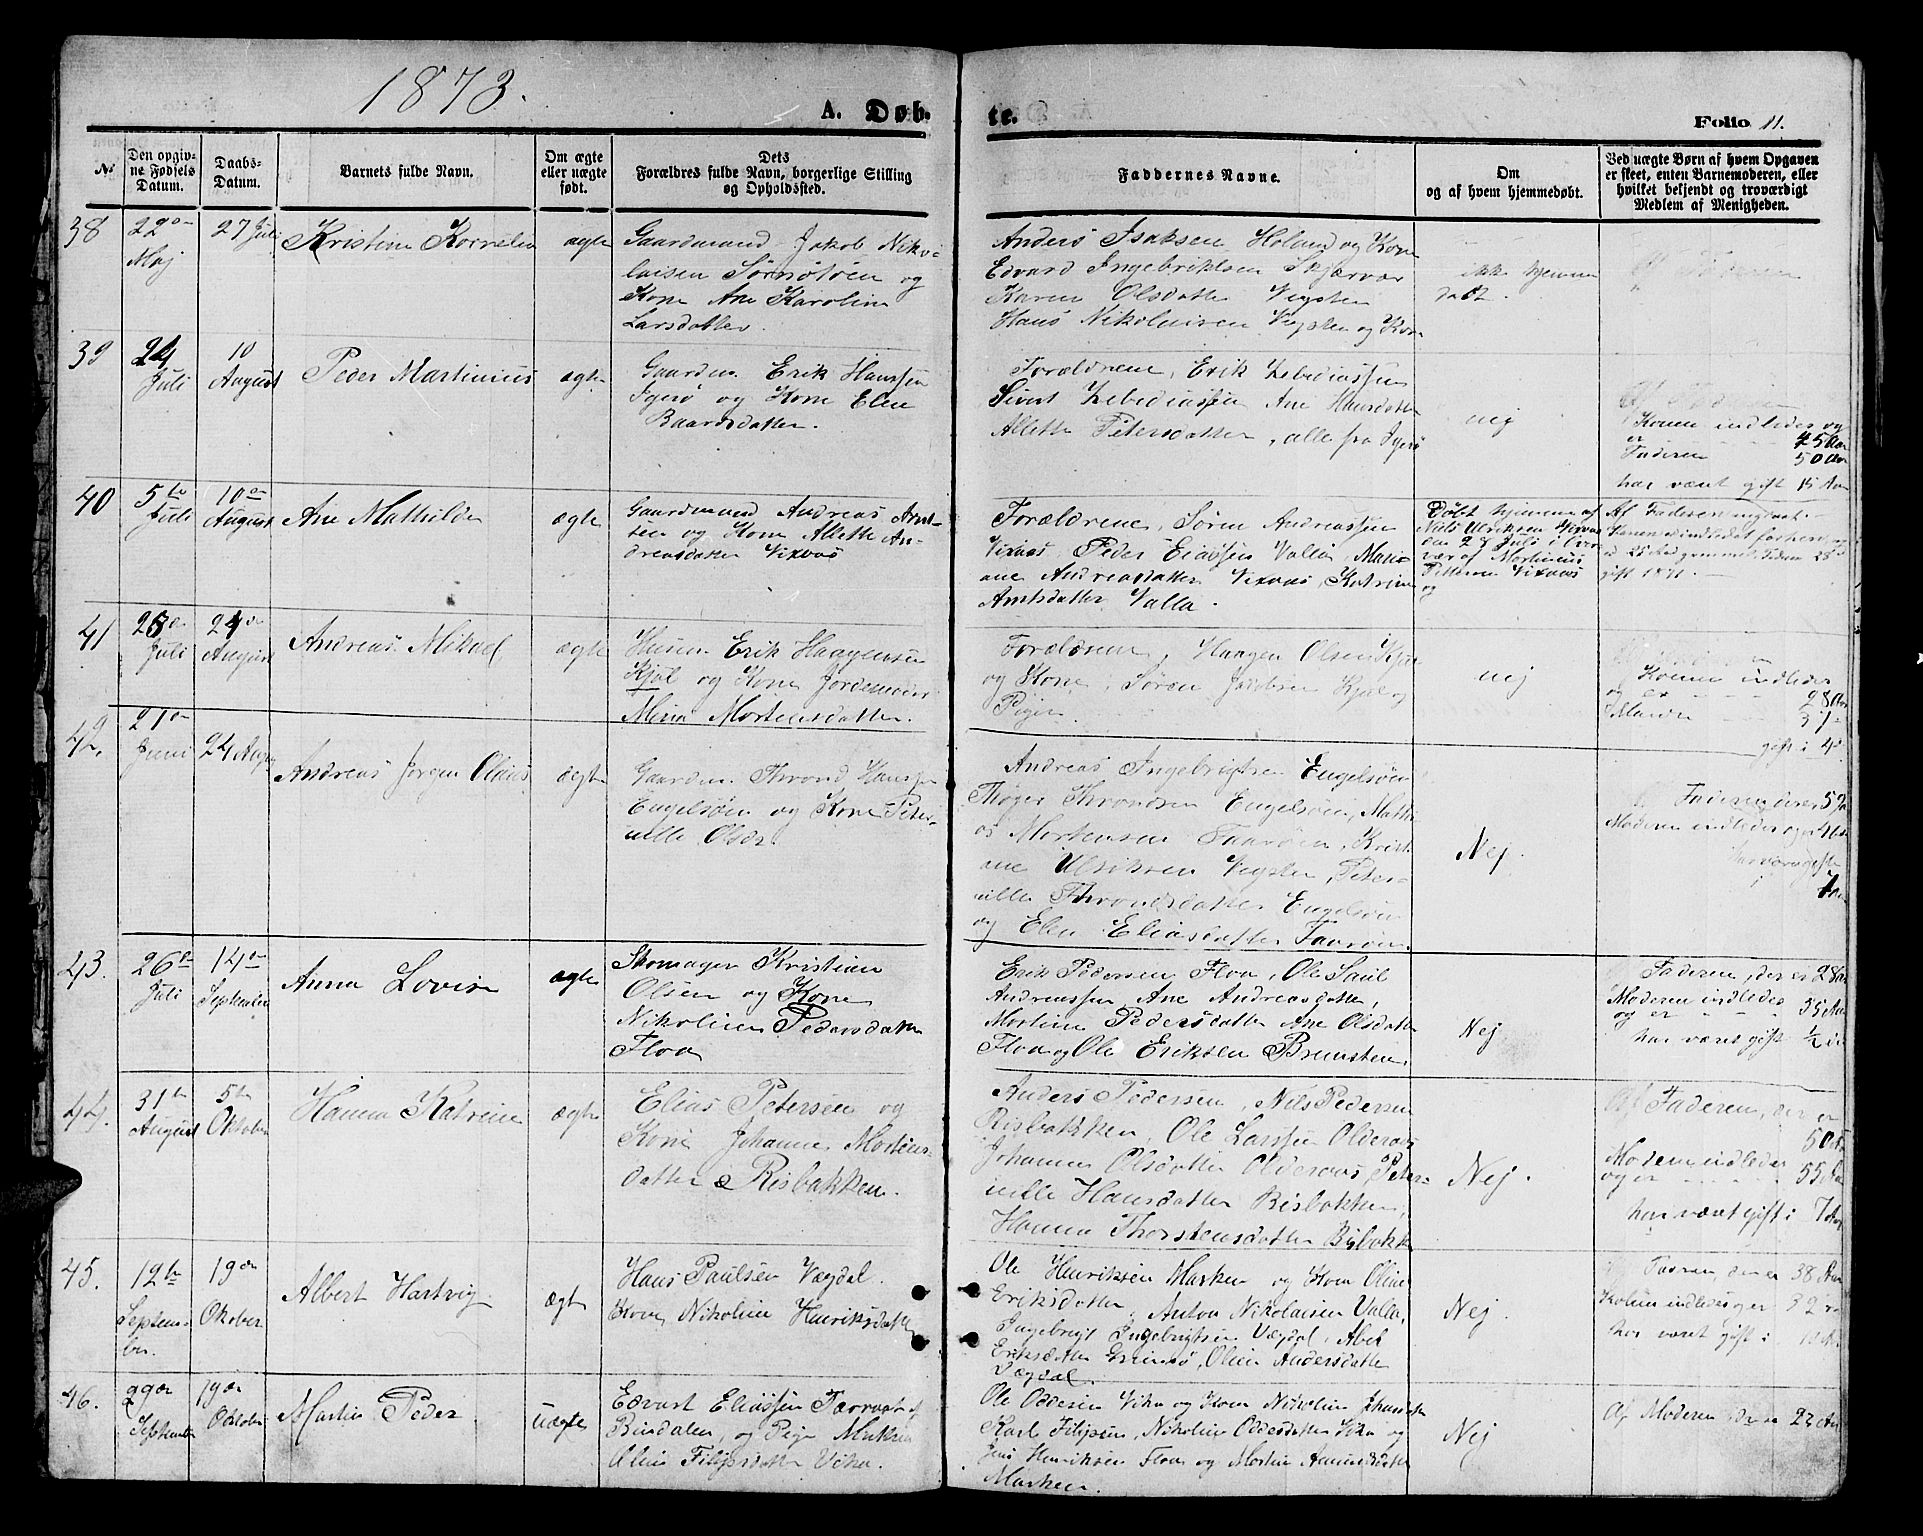 1873.
A. Døb-
te.
Folio 11.
№
Den opgiv-
ne Fødsels
Datum.
Daabs-
Datum.
Barnets fulde Navn.
Om ægte
eller uægte
født.
Dets
Forældres fulde Navn, borgerlige Stilling
og Opholdssted.
Faddernes Navne.
Om
og af hvem hjemmedøbt.
Ved uægte Børn af hvem Opgaven
er skeet, enten Barnemoderen, eller
hvilket bekjendt og troværdigt
Medlem af Menigheden.
38
22de
Maj
27 Juli
Kristine Kornelia
ægte
Gaardmand Jakob Niko-
laisen Sørnøsøen og
Kone Ane Karoline
Larsdatter.
Anders Isaksen Holand og Kone
Edvard Ingebriktsen Skjærvær
Karen Olsdatter Vegsten
Hans Nikolaisen Vegsten og Kone
ikke hjemme
døbt.
Af Faderen
39
24
Juli
10
August
Peder Martinius
ægte
Gaardm. Erik Hanssen
Igerø og Kone Elen
Baardsdatter.
Forældrene, Erik Zebediassen
Sivert Zebediassen Ane Hansdatter
Alette Petersdatter, alle fra Igerø
nej
Af Faderen
Konen indledes og
er 45 Aar
Faderen 50 Aar
har været gift 15 Aar
40
5te
Juli
10de
August
Ane Mathilde
ægte
Gaardmand Andreas Arnt-
sen og Kone Alette An-
dreasdatter Vixvas
Forældrene, Søren Andreassen
Vixvas, Peder Eliassen Valla, Mari-
ane Andreasdatter Vixvaas, Katrine
Arntsdatter Valla.
Døbt hjemme af
Nils Ulriksen Vixvas
den 27 Juli i Over
vær af Martinius
Pettersen Vixvaas
og
Af Faderen
gift 1871.
41
28de
Juli
24de
August
Andreas Mikael
ægte
Husm. Erik Haagensen
Kjul og Kone Jordemoder
Maria Mortensdatter.
Forældrene, Haagen Olsen Kjul
og Kone, Søren Jakobsen Kjul og
Pige.
nej
Konen indledes
og er 28 Aar
Manden 37
gift i 4
42.
21de
Juni
24 Aug
Andreas Jørgen Olaus
ægte
Gaardm. Thrond Hanssen
Engelsøen og Kone Peter-
nille Olsdr
Andreas Ingebrigtsen Engelsøen
Thøger Throndsen Engelsøen, Mathi
as Mortensen Taarøen, Krist
ane Ulriksen Vegsten, Peter-
nille Throndsdatter Engelsøen
og Elen Eliasdatter Taarøen.
Nej.
Faderen der er
Moderen indledes og er
har været gift
i
43.
26de
Juli
14de
September
Anna Lovise
ægte
Skomager Kristian
Olsen og Kone
Nikoline Pedersdatter
Floa
Erik Pedersen Floa, Ole Paul
Andreassen, Ane Andreasdatter,
Martine Pedersdatter Ane Olsdatter
Floa og Ole Eriksen Bremsten.
Nej
Faderen, der er 28 Aar
Moderen indledes
og er 35 Aar
har været gift ½
44.
31te
August
5te
Oktober
Hanna Katrine
ægte
Elias Petersen og
Kone Johanna Mortens-
datter Risbakken.
Anders Pedersen, Nils Pedersen
Risbakken, Ole Larssen Olderaas
Johanna Olsdatter Olderaas, Peter-
nille Hansdatter Risbakken,
Hanna Thorstensdatter Risbakk
Nej.
Af Faderen, der er
50
Moderen indledes
og er 55
har været gift i 7 Aar
45.
12te
Septem-
ber.
19de
Oktober
Albert Hartvig
ægte
Hans Paulsen Vægdal.
Kone Nikoline Henriksdatter
Ole Henriksen Marken og Kone Oline
Eriksdatter, Anton Nikolaisen Valla,
Ingebrigt Ingebrigtsen Vægdal, Abel
Eriksdatter Grimsø, Oline Andersdatter
Vægdal.
Nej.
Faderen, der er 38 Aar
Konen indledes og er 32
har været gift i
46.
29de
September
19de
Oktober
Martin Peder
uægte
Edvart Eliassen Torvast af
Bindalen, og Pige
Filipsdatter Vika.
Ole Oddesen Vika og Kone Nikoline Johansdatter
Karl Filipsen, Nikoline Oddesdatter Vika og
Jens Henriksen Floa og Martin
Marken.
Nej
Af Moderen der er 23 Aar